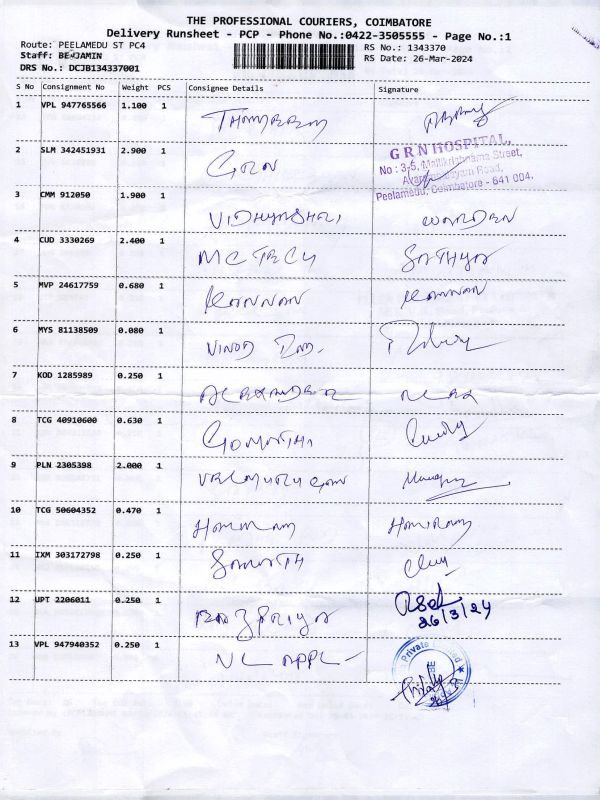 THE PROFESSIONAL COURIERS, COIMBATORE
Delivery Runsheet - PCP - Phone No.:0422-3505555 - Page No.:1
Route: PEELAMEDU ST PC4 RS No.: 1343370
Staff: BENJAMIN RS Date: 26-Mar-2024
DRS No.: DCJB134337001
S No Consignment No Weight PCS Consignee Details Signature
1 VPL 947765566 1.100 1
GRN HOSPITAL,
2 SLM 342451931 2.900 1
No : 3-5, Mallikrishnama Street,
Road,
Peelamedu, Coimbatore - 641 004.
3 CMM 912050 1.900 1
VIDHYASHRI WARDEN
4 CUD 3330269 2.400 1
MCTECH SATHYA
5 MVP 24617759 0.680 1
KANNAN KANNAN
6 MYS 81138509 0.080 1
VINOD
7 KOD 1285989 0.250 1
ALEXANDER ALEX
8 TCG 40910600 0.630 1
GOMATHI
9 PLN 2305398 2.000 1
10 TCG 50604352 0.470 1
11 IXM 303172798 0.250 1
12 UPT 2206011 0.250 1
26/3/24
13 VPL 947940352 0.250 1
Private